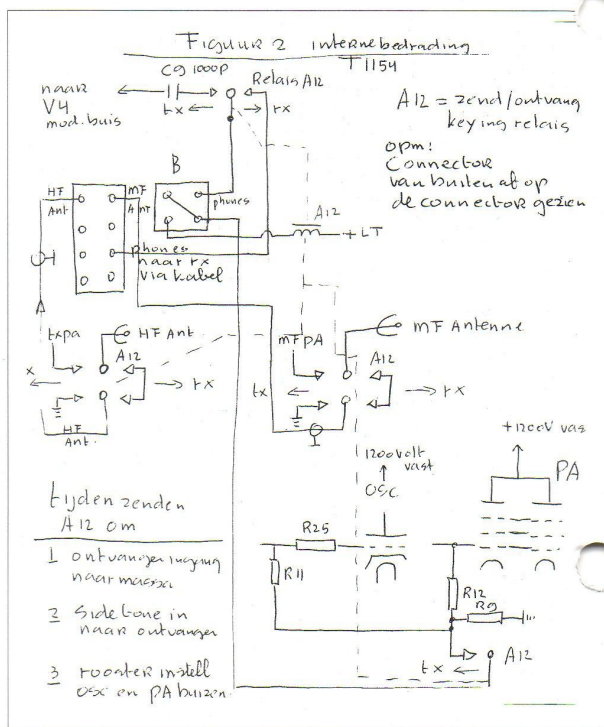 Figuur 2 interne bedrading
T1154
C9 1000P
Relais A12
naar
V4
mod. buis
tx
rx
A12 = zend/ontvang
keying relais
opm:
Connector
van buiten af op
de connector gezien
B
HF
Ant
MF
Ant
phones
A12
+LT
phones
naar rx
via kabel
txpa
HF Ant
A12
x
rx
HF
Ant.
MF PA
MF Antenne
A12
tx
rx
1200volt
vast
OSC
+1200V vas
PA
R25
R11
R12
R9
A12
tx
tijden zenden
A12 om
1 ontvanger ingang
naar massa
2 sidetone in
naar ontvanger
3 rooster instell
osc en PA buizen